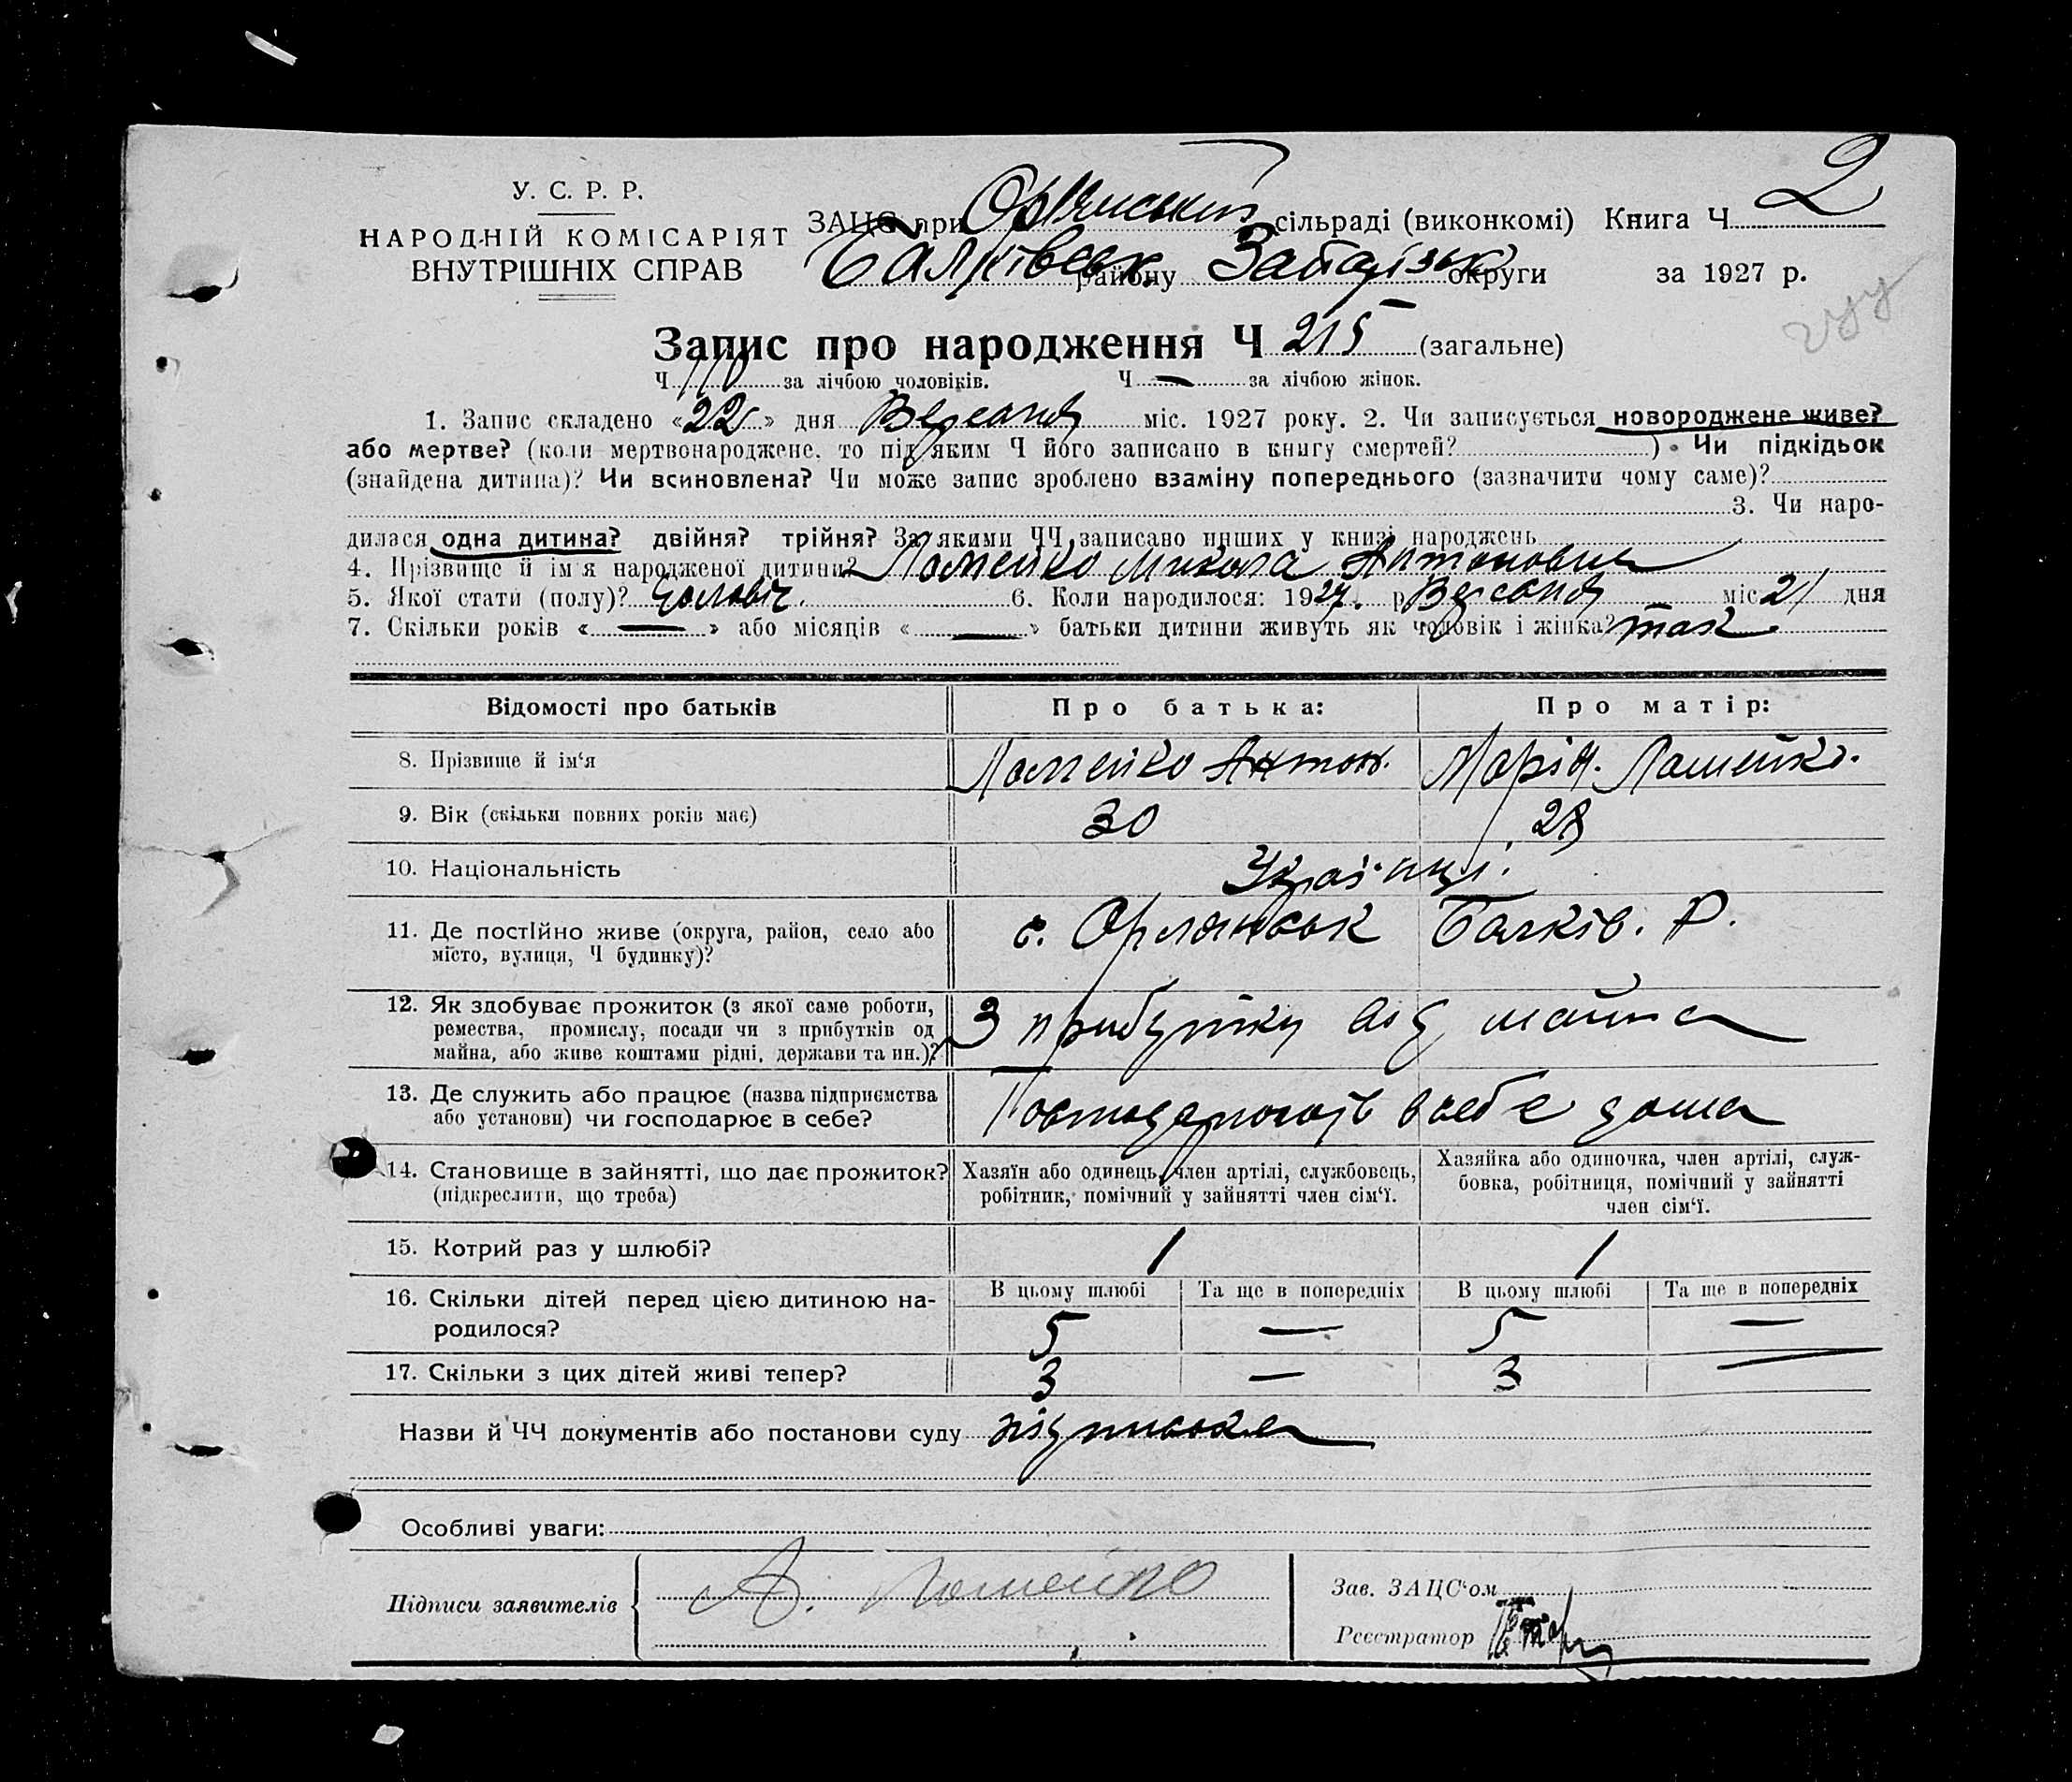 У. С. Р. Р.
НАРОДНІЙ КОМІСАРІЯТ
ВНУТРІШНІХ СПРАВ
ЗАЦС при сільраді (виконкомі) Книга Ч 2
району округи за 1927 р.
Запис про народження Ч 215 (загальне)
Ч 110 за лічбою чоловіків. Ч — за лічбою жінок.
1. Запис складено «22» дня міс. 1927 року. 2. Чи записується новороджене живе?
або мертве? (коли мертвонароджене, то під яким Ч його записано в книгу смертей? ) • Чи підкідьок
(знайдена дитина)? Чи всиновлена? Чи може запис зроблено взаміну попереднього (зазначити чому саме)?
3. Чи наро-
дилася одна дитина? двійня? трійня? За якими ЧЧ записано инших у книзі народжень
4. Прізвище й ім'я народженої дитини? Ломейко Микола Антонович
5. Якої стати (полу)? 6. Коли народилося: 1927. р міс 21 дня
7. Скільки років «—» або місяців «—» батьки дитини живуть як чоловік і жінка? так
Відомості про батьків Про батька: Про матір:
8. Прізвище й ім‘я Ломейко Антон. Марія. Ломейко.
9. Вік (скільки повних років має) 30 28
10. Національність Українці.
11. Де постійно живе (округа, район, село або
місто, вулиця, Ч будинку)? с. Орлянськ Балків. Р.
12. Як здобуває прожиток (з якої саме роботи,
ремества, промислу, посади чи з прибутків од
майна, або живе коштами рідні, держави та ин.)? З прибутку від майна
13. Де служить або працює (назва підприємства
або установи) чи господарює в себе? в себе дома
14. Становище в зайнятті, що дає прожиток?
(підкреслити, що треба)
Хазяїн або одинець, член артілі, службовець,
робітник, помічний у зайнятті член сім‘ї.
Хазяйка або одиночка, член артілі, служ-
бовка, робітниця, помічний у зайнятті
член сім‘ї.
15. Котрий раз у шлюбі? 1 1
16. Скільки дітей перед цією дитиною на-
родилося?
В цьому шлюбі Та ще в попередніх В цьому шлюбі Та ще в попередніх
5 — 5 —
17. Скільки з цих дітей живі тепер? 3 — 3 —
Назви й ЧЧ документів або постанови суду підписка
Особливі уваги:
Підписи заявителів А. Ломейко
Зав. ЗАЦС‘ом
Реєстратор